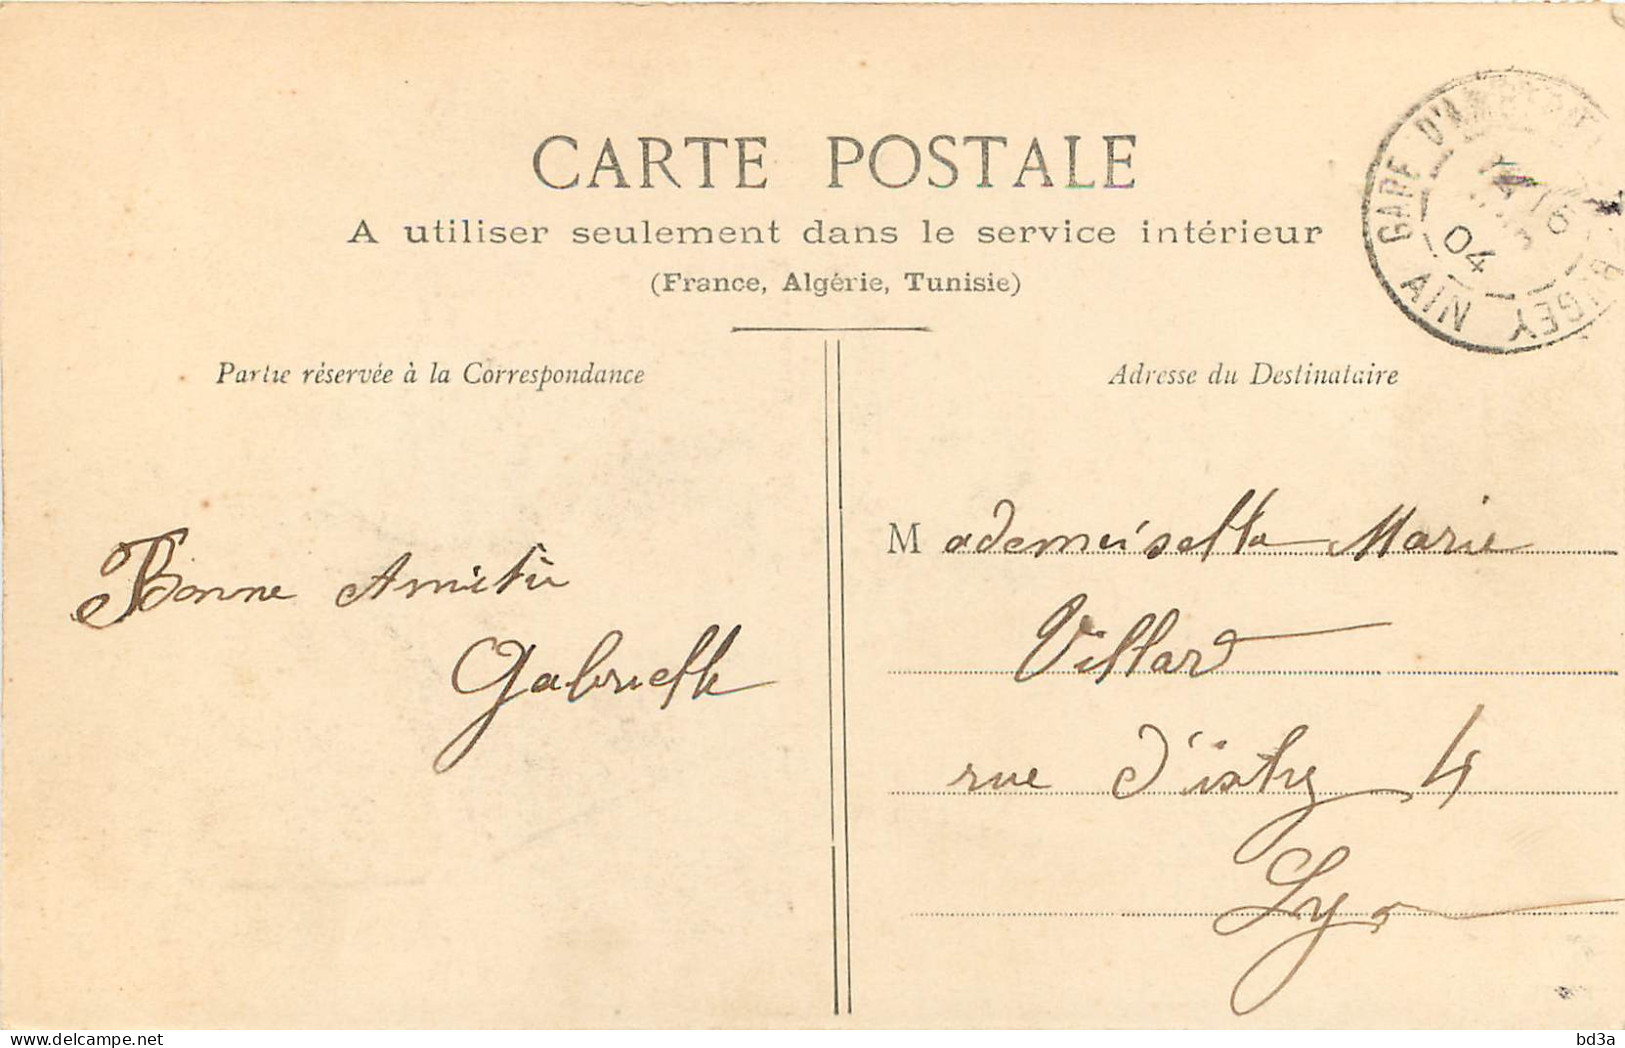 CARTE POSTALE
A utiliser seulement dans le service intérieur
(France, Algérie, Tunisie)
Partie réservée à la Correspondance
Adresse du Destinataire
GARE D'AMBERIEU
BUGEY
AIN
04
Bonne Amitié
Gabrielle
Mademoiselle Marie
Villard
rue d'isly 4
Lyon
bd3a